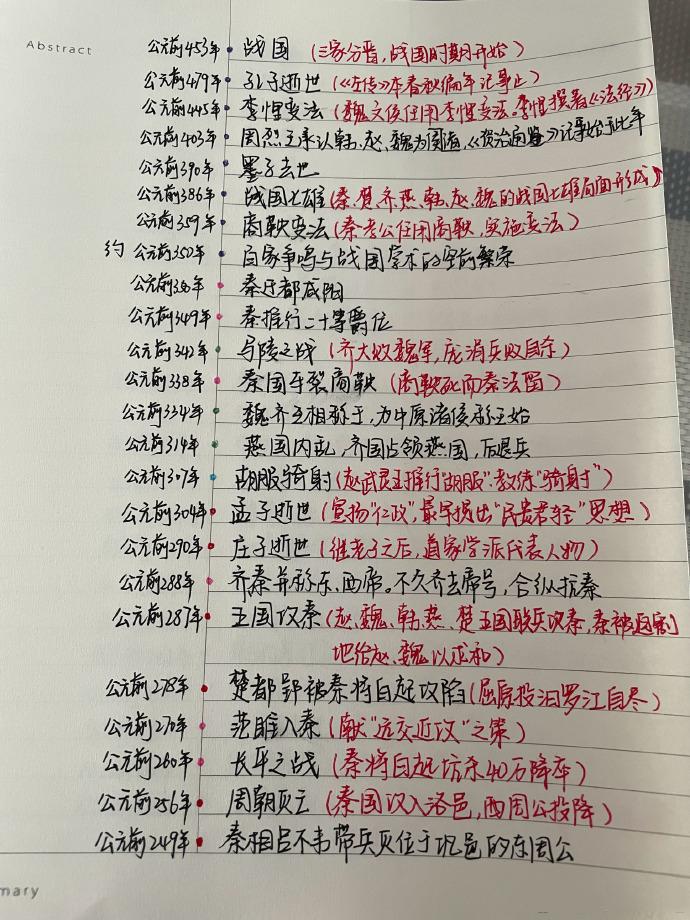 Abstract
公元前453年 战国（三家分晋，战国时期开始）
公元前479年 孔子逝世（《左传》本春秋编年记事止）
公元前445年 李悝变法（魏文侯任用李悝变法。李悝撰着《法经》）
公元前403年 周烈王承认韩、赵、魏为诸侯，《资治通鉴》记事始于此年
公元前390年 墨子去世
公元前386年 战国七雄（秦、楚、齐、燕、韩、赵、魏的战国七雄局面形成）
公元前359年 商鞅变法（秦孝公任用商鞅，实施变法）
约 公元前350年 百家争鸣与战国学术的空前繁荣
公元前350年 秦迁都咸阳
公元前349年 秦推行二十等爵位
公元前342年 马陵之战（齐大败魏军，庞涓兵败自杀）
公元前338年 秦国车裂商鞅（商鞅死而秦法留）
公元前334年 魏齐互相称王，为中原诸侯称王始
公元前314年 燕国内乱，齐国占领燕国，后退兵
公元前307年 胡服骑射（赵武灵王推行"胡服"，教练"骑射"）
公元前304年 孟子逝世（宣扬"仁政"，最早提出"民贵君轻"思想）
公元前290年 庄子逝世（继老子之后，道家学派代表人物）
公元前288年 齐秦并称东、西帝。不久齐去帝号，合纵抗秦
公元前287年 五国攻秦（赵、魏、韩、燕、楚五国联兵攻秦，秦被迫割
地给赵、魏以求和）
公元前278年 楚都郢被秦将白起攻陷（屈原投汨罗江自尽）
公元前270年 范雎入秦（献"远交近攻"之策）
公元前260年 长平之战（秦将白起坑杀40万降卒）
公元前256年 周朝灭亡（秦国攻入洛邑，西周公投降）
公元前249年 秦相吕不韦带兵灭位于巩邑的东周公
mary